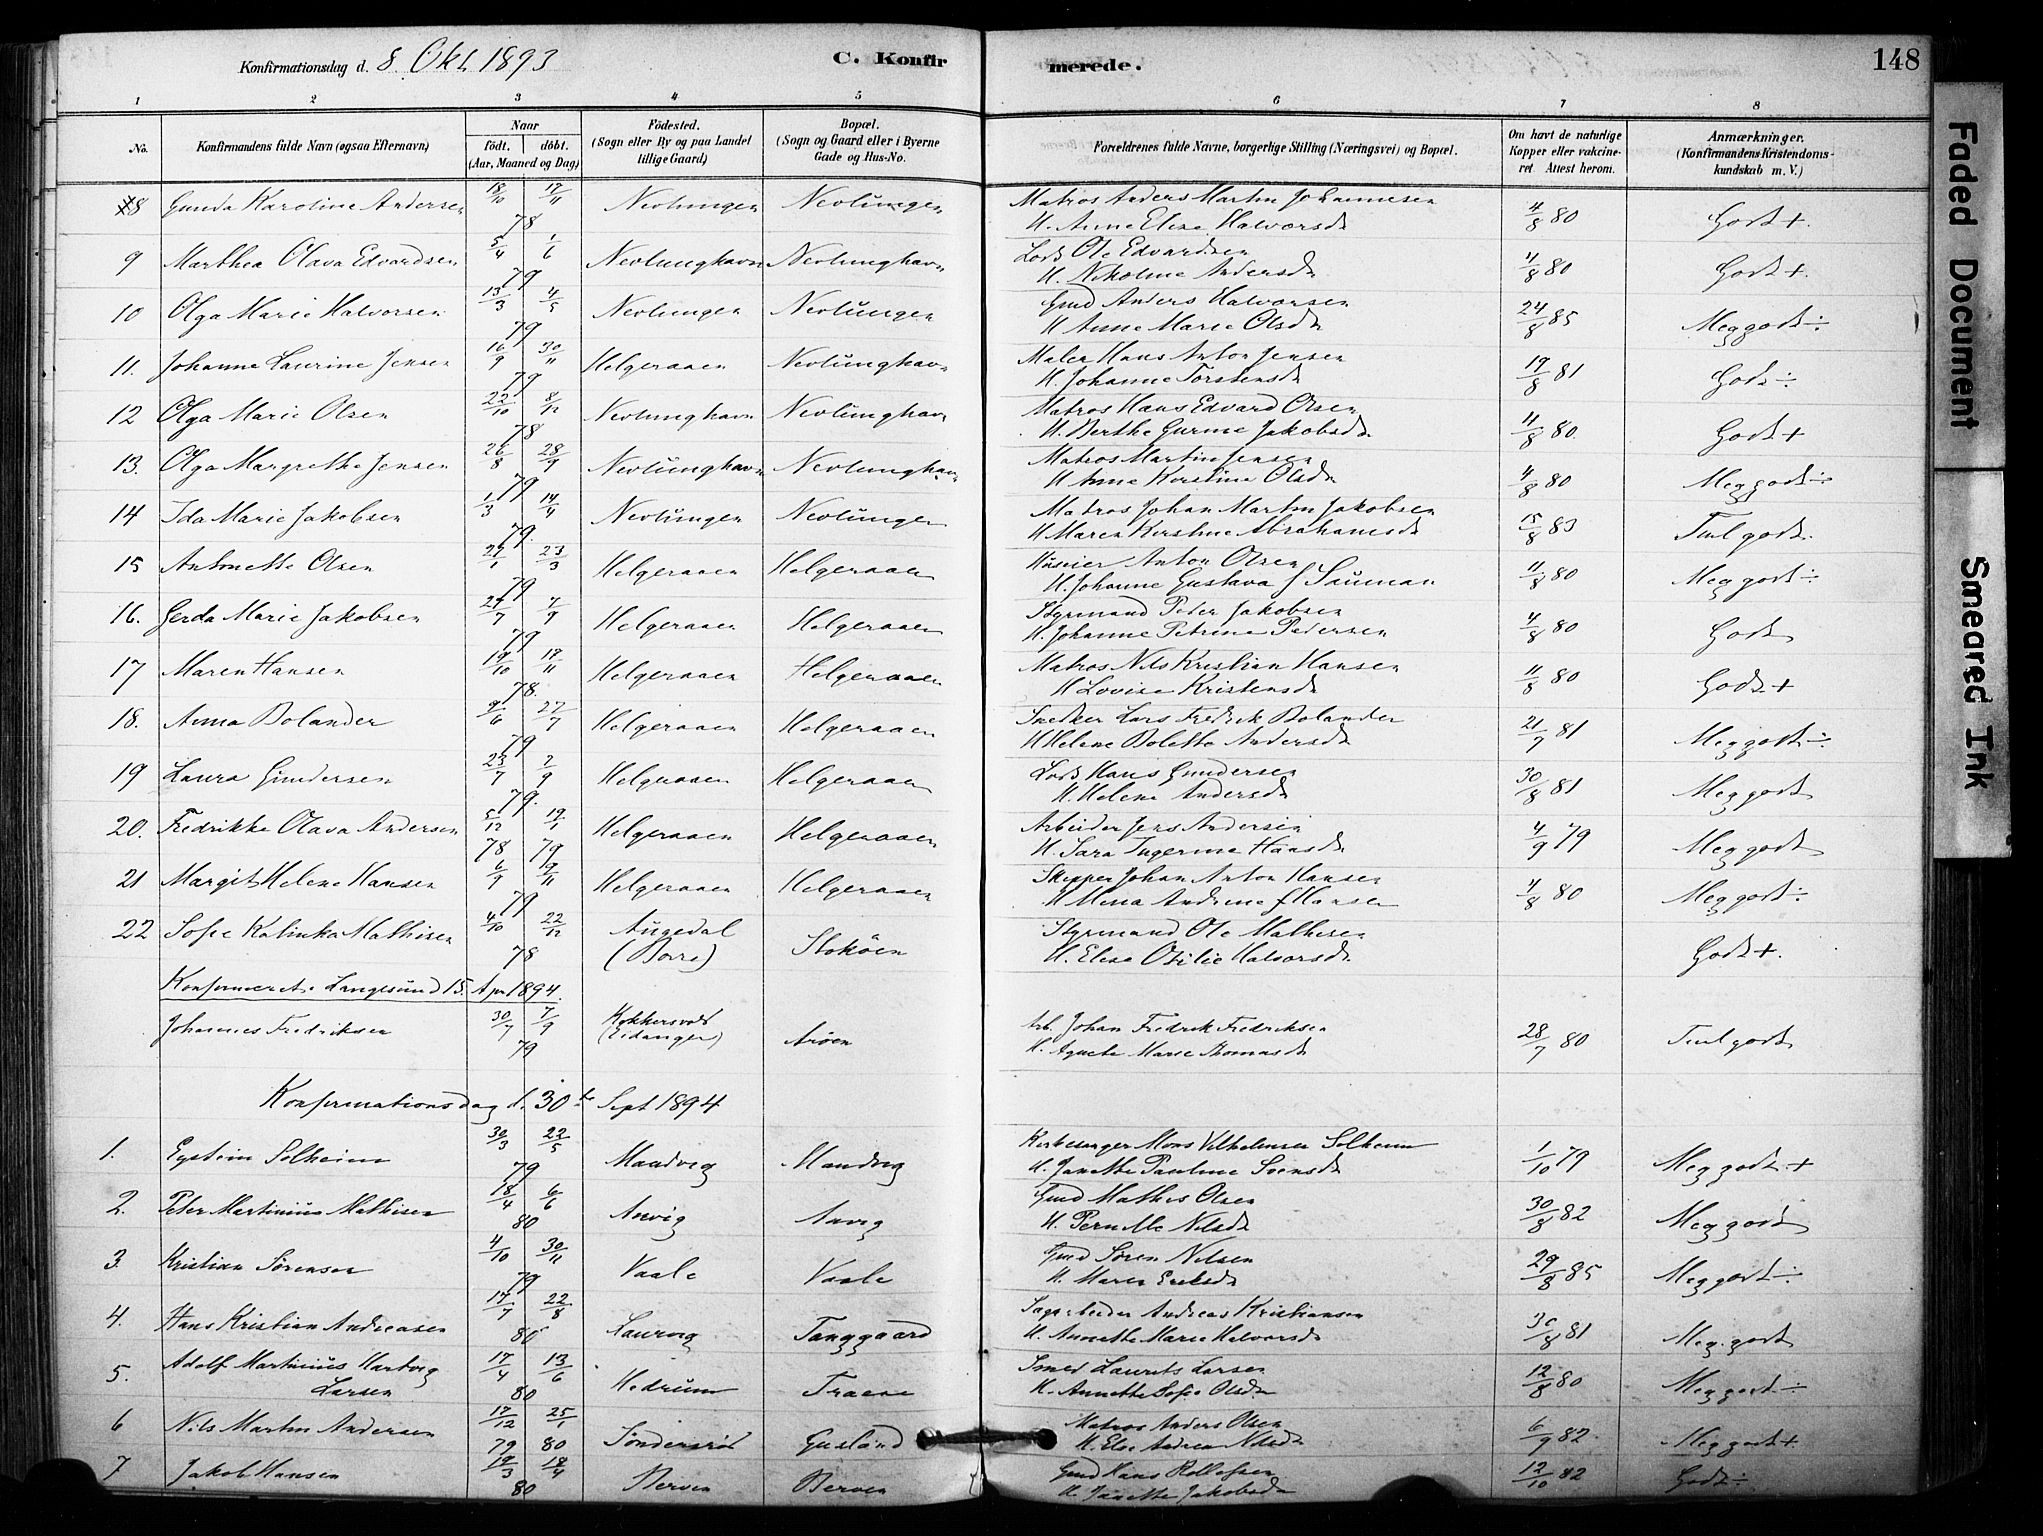 Konfirmationsdag d. 8. Okt. 1893
C. Konfir merede.
148
1 2 3 4 5 6 7 8
No.
Konfirmandens fulde Navn (ogsaa Efternavn)
Naar
födt. döbt.
(Aar, Maaned og Dag)
Födested.
(Sogn eller By og paa Landet
tillige Gaard)
Bopæl.
(Sogn og Gaard eller i Byerne
Gade og Hus-No.
Forældrenes fulde Navne, borgerlige Stilling (Næringsvei) og Bopæl.
Om havt de naturlige
Kopper eller vakcine-
ret Attest herom.
Anmærkninger.
(Konfirmandens Kristendoms-
kundskab m. V.)
8 Gunda Karoline Andersen 18/10 17/11 78 Nevlungen Nevlungen Matros Anders Martin Johannesen 4/8 80 Godt +.
H. Anne Elise Halvorsdr
9 Marthea Olava Edvardsen 5/4 1/6 79 Nevlunghavn Nevlunghavn Lods Ole Edvardsen 4/8 80 Godt +.
H. Nikoline Andersdr
10 Olga Marie Halvorsen 13/3 4/5 79 Nevlungen Nevlungen Gmd Anders Halvorsen 24/8 85 Meg godt ÷
H Anne Marie Olsdr
11. Johanne Laurine Jensen 16/9 30/11 79 Helgeraaen Nevlunghavn Maler Hans Anton Jensen 17/8 81 Godt ÷
H. Johanne Torstensdr
12 Olga Marie Olsen 22/10 8/12 78 Nevlunghavn Nevlunghavn Matros Hans Edvard Olsen 4/8 80. Godt +
H. Berthe Gurine Jakobsdr
13. Olga Margrethe Jensen 26/8 28/9 79 Nevlunghavn Nevlunghavn Matros Martin Jensen 4/8 80 Meg godt ÷
H Anne Kirstine Olsdr
14 Ida Marie Jakobsen 1/3 14/4 79. Nevlungen Nevlungen Matros Johan Martin Jakobsen 15/8 83 Tml godt.
H Maren Kirstine Abrahamsdr
15 Antonette Olsen 27/1 23/3 79 Helgeraaen Helgeraaen Husier Anton Olsen 11/8 80 Meg godt ÷
H. Johanne Gustava f Sauman
16. Gerda Marie Jakobsen 27/7 7/9 79 Helgeraaen Helgeraaen Styrmand Peter Jakobsen 4/8 80 Godt
H. Johanne Petrine Pedersen
17 Maren Hansen 19/10 17/11 78. Helgeraaen Helgeraaen Matros Nils Kristian Hansen 11/8 80 Godt +
H Lovise Kristensdr
18. Anna Bolander 9/6 27/7 79 Helgeraaen Helgeraaen Snedker Lars Fredrik Bolander 21/7 81 Meg godt ÷.
H Helene Bolette Andersdr
19 Laura Gundersen 23/7 7/9 79. Helgeraaen Helgeraaen Lods Hans Gundersen 30/8 81 Meg godt
H. Helene Andersdr
20. Fredrikke Olava Andersen 5/12 19/1 78 79 Helgeraaen Helgeraaen Arbeider Jens Andersen 4/9 79 Meg godt
H. Sara Ingerine Hansdr
21 Margit Helene Hansen 6/9 9/11 79 Helgeraaen Helgeraaen Skipper Johan Anton Hansen 4/8 80 Meg godt ÷
H Mena Andrine f Hansen
22 Sofie Kalinka Mathisen 4/10 22/12 78 Augedal (Borre) Stoköen Styrmand Ole Mathisen Godt +.
H. Elise Otilie Halvorsdr
Konfirmeret i Langesund 15. Apr 1894.
Johannes Fredriksen 30/7 7/9 79 Kokkersvold (Eidanger) Aröen Arb. Johan Fredrik Fredriksen 28/7 80 Tml godt
H. Agnete Marie Thomasdr
Konfirmationsdag d. 30te Sept 1894
1. Eystein Solheim 30/3 22/5 79 Manvig Manvig Kirkesanger Mons Vilhelmsen Solheim 1/10 79 Meg godt +
H. Janette Pauline Svensdr
2. Peter Martinius Mathisen 18/4 6/6 80 Anvig Anvig Gmd Mathis Olsen 30/8 82 Meg godt
H. Pernille Nilsdr
3. Kristian Sörensen 4/10 30/11 79 Vaale Vaale Gmd Sören Nilsen 29/8 85 Meg godt ÷
H. Maren Eriksdr
4. Hans Kristian Andreasen 17/7 22/8 80 Laurvig Tanggaard Sagarbeider Andreas Kristiansen 30/8 81 Meg. godt
H. Annette Marie Halvorsdr
5. Adolf Martinius Hartvig Larsen 17/4 13/6 80 Hedrum Traaen Smed Laurits Larsen 12/8 80 Meg godt ÷
H. Annette Sofie Olsdr
6 Nils Martin Andersen 17/12 25/1 79 80 Söndersröd Gusland Matros Anders Olsen 6/9 82. Meg godt +
H. Else Andrea Nilsdr
7 Jakob Hansen 19/3 18/4 80 Berven Berven Gmd Hans Rollefsen 12/10 82 Godt ÷
H. Janette Jakobsdr
Faded Document
Smeared Ink